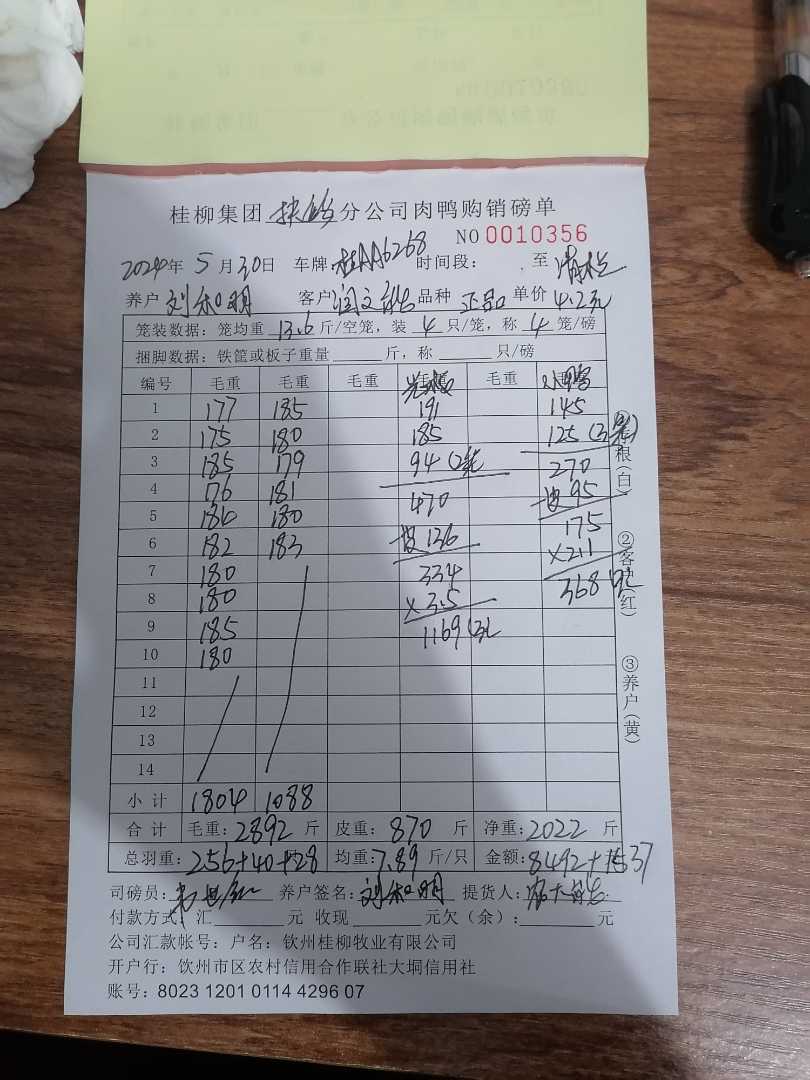 桂柳集团 扶绥 分公司肉鸭购销磅单
NO 0010356
2024年 5 月 30日 车牌 桂AA6268 时间段: 至
养户 刘和明 客户 品种 正品 单价 4.2元
笼装数据: 笼均重 13.6 斤/空笼, 装 4 只/笼, 称 4 笼/磅
捆脚数据: 铁筐或板子重量 斤, 称 只/磅
编号 毛重 毛重 毛重 毛重
1 177 185 191 145
2 175 180 185 125 (3笼)
3 185 179 94 (2笼 270
4 176 181 470 皮95
5 184 180 皮136 175
6 182 183 334 ×2.1
7 180 ×3.5 368元
8 180 1169元
9 185
10 180
11
12
13
14
小计 1804 1088
合计 毛重: 2892 斤 皮重: 870 斤 净重: 2022 斤
总羽重: 256+40+28 均重: 7.89 斤/只 金额: 8492+1537
司磅员: 养户签名: 刘和明 提货人:
付款方式: 汇 元 收现 元欠(余): 元
公司汇款帐号: 户名: 钦州桂柳牧业有限公司
开户行: 钦州市区农村信用合作联社大垌信用社
账号: 8023 1201 0114 4296 07
根(白)
②客户(红)
③养户(黄)